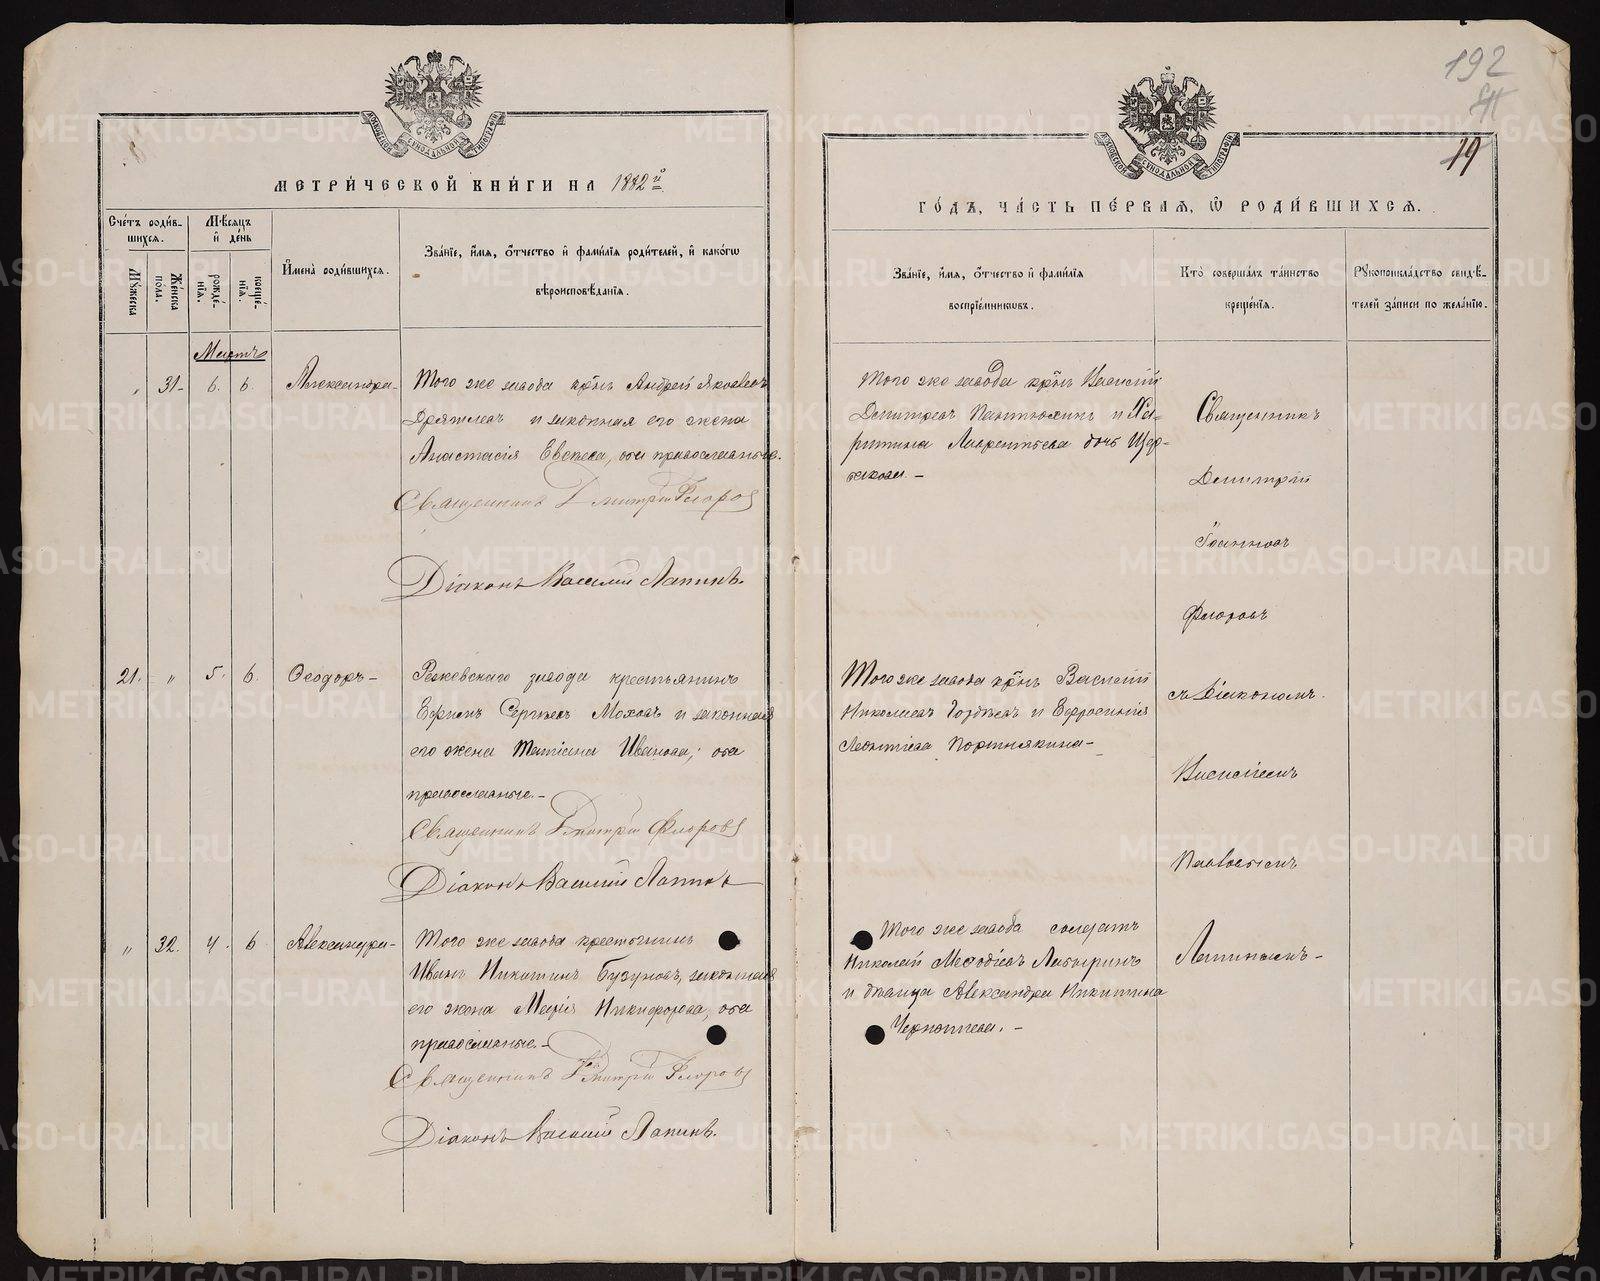 192
19
МЕТРИ́ЧЕСКОЙ КНИ́ГИ НА 1882й
ГО́ДЪ, ЧА́СТЬ ПЕ́РВАЯ, Ѽ РОДИ́ВШИХСѦ.
Сче́тъ роди́в-
шихсѧ.
Мꙋ́жеска
Же́нска
по́ла.
Мѣ́сѧцъ
и҆ де́нь
рожде́-
нїѧ.
креще́-
нїѧ.
И҆мена̀ роди́вшихсѧ.
Зва́нїе, и҆́мѧ, ѻ҆́тчество и҆ фами́лїѧ роди́телей, и҆ како́гѡ
вѣроисповѣ́данїѧ.
Зва́нїе, и҆́мѧ, ѻ҆́тчество и҆ фами́лїѧ
воспрїе́мникѡвъ.
Кто̀ соверша́лъ та́инство
креще́нїѧ.
Рꙋкоприкла́дство свидѣ́-
телей за́писи по жела́нїю.
Мартъ
„ 31- 6. 6. Александра-
Того же завода кр̃нъ Андрей Яковлевъ
и законная его жена
Анастасія Евсеева, оба православные.
Священникъ Дмитрій Флоровъ
Діаконъ Василій Лапинъ.
Того же завода кр̃нъ Василій
Димитріевъ Пантюхинъ и Ха-
ритина Лаврентьева дочь Щер-
бакова. -
Священникъ
Димитрій
Іоанновъ
Флоровъ
съ діакономъ.
Василіемъ
Павловымъ
Лапинымъ-
21. „ 5. 6. Ѳеодоръ-
Режевскаго завода крестьянинъ
Ефимъ Сергѣевъ Моховъ и законная
его жена Татіана Иванова; оба
православные.-
Священникъ Дмитрій Флоровъ
Діаконъ Василій Лапинъ
Того же завода кр̃нъ Василій
Николаевъ Гордѣевъ и Ефросинія
Леонтіева Портнякина-
„ 32. 4. 6 Александра-
Того же завода крестьянинъ
Иванъ Никитинъ Бузуновъ, законная
его жена Марія Никифорова, оба
православные.-
Священникъ Дмитрій Флоровъ
Діаконъ Василій Лапинъ.
Того же завода солдатъ
Николай Меѳодіевъ Латыринъ
и дѣвица Александра Никитина
Черепанова. -
METRIKI.GASO-URAL.RU